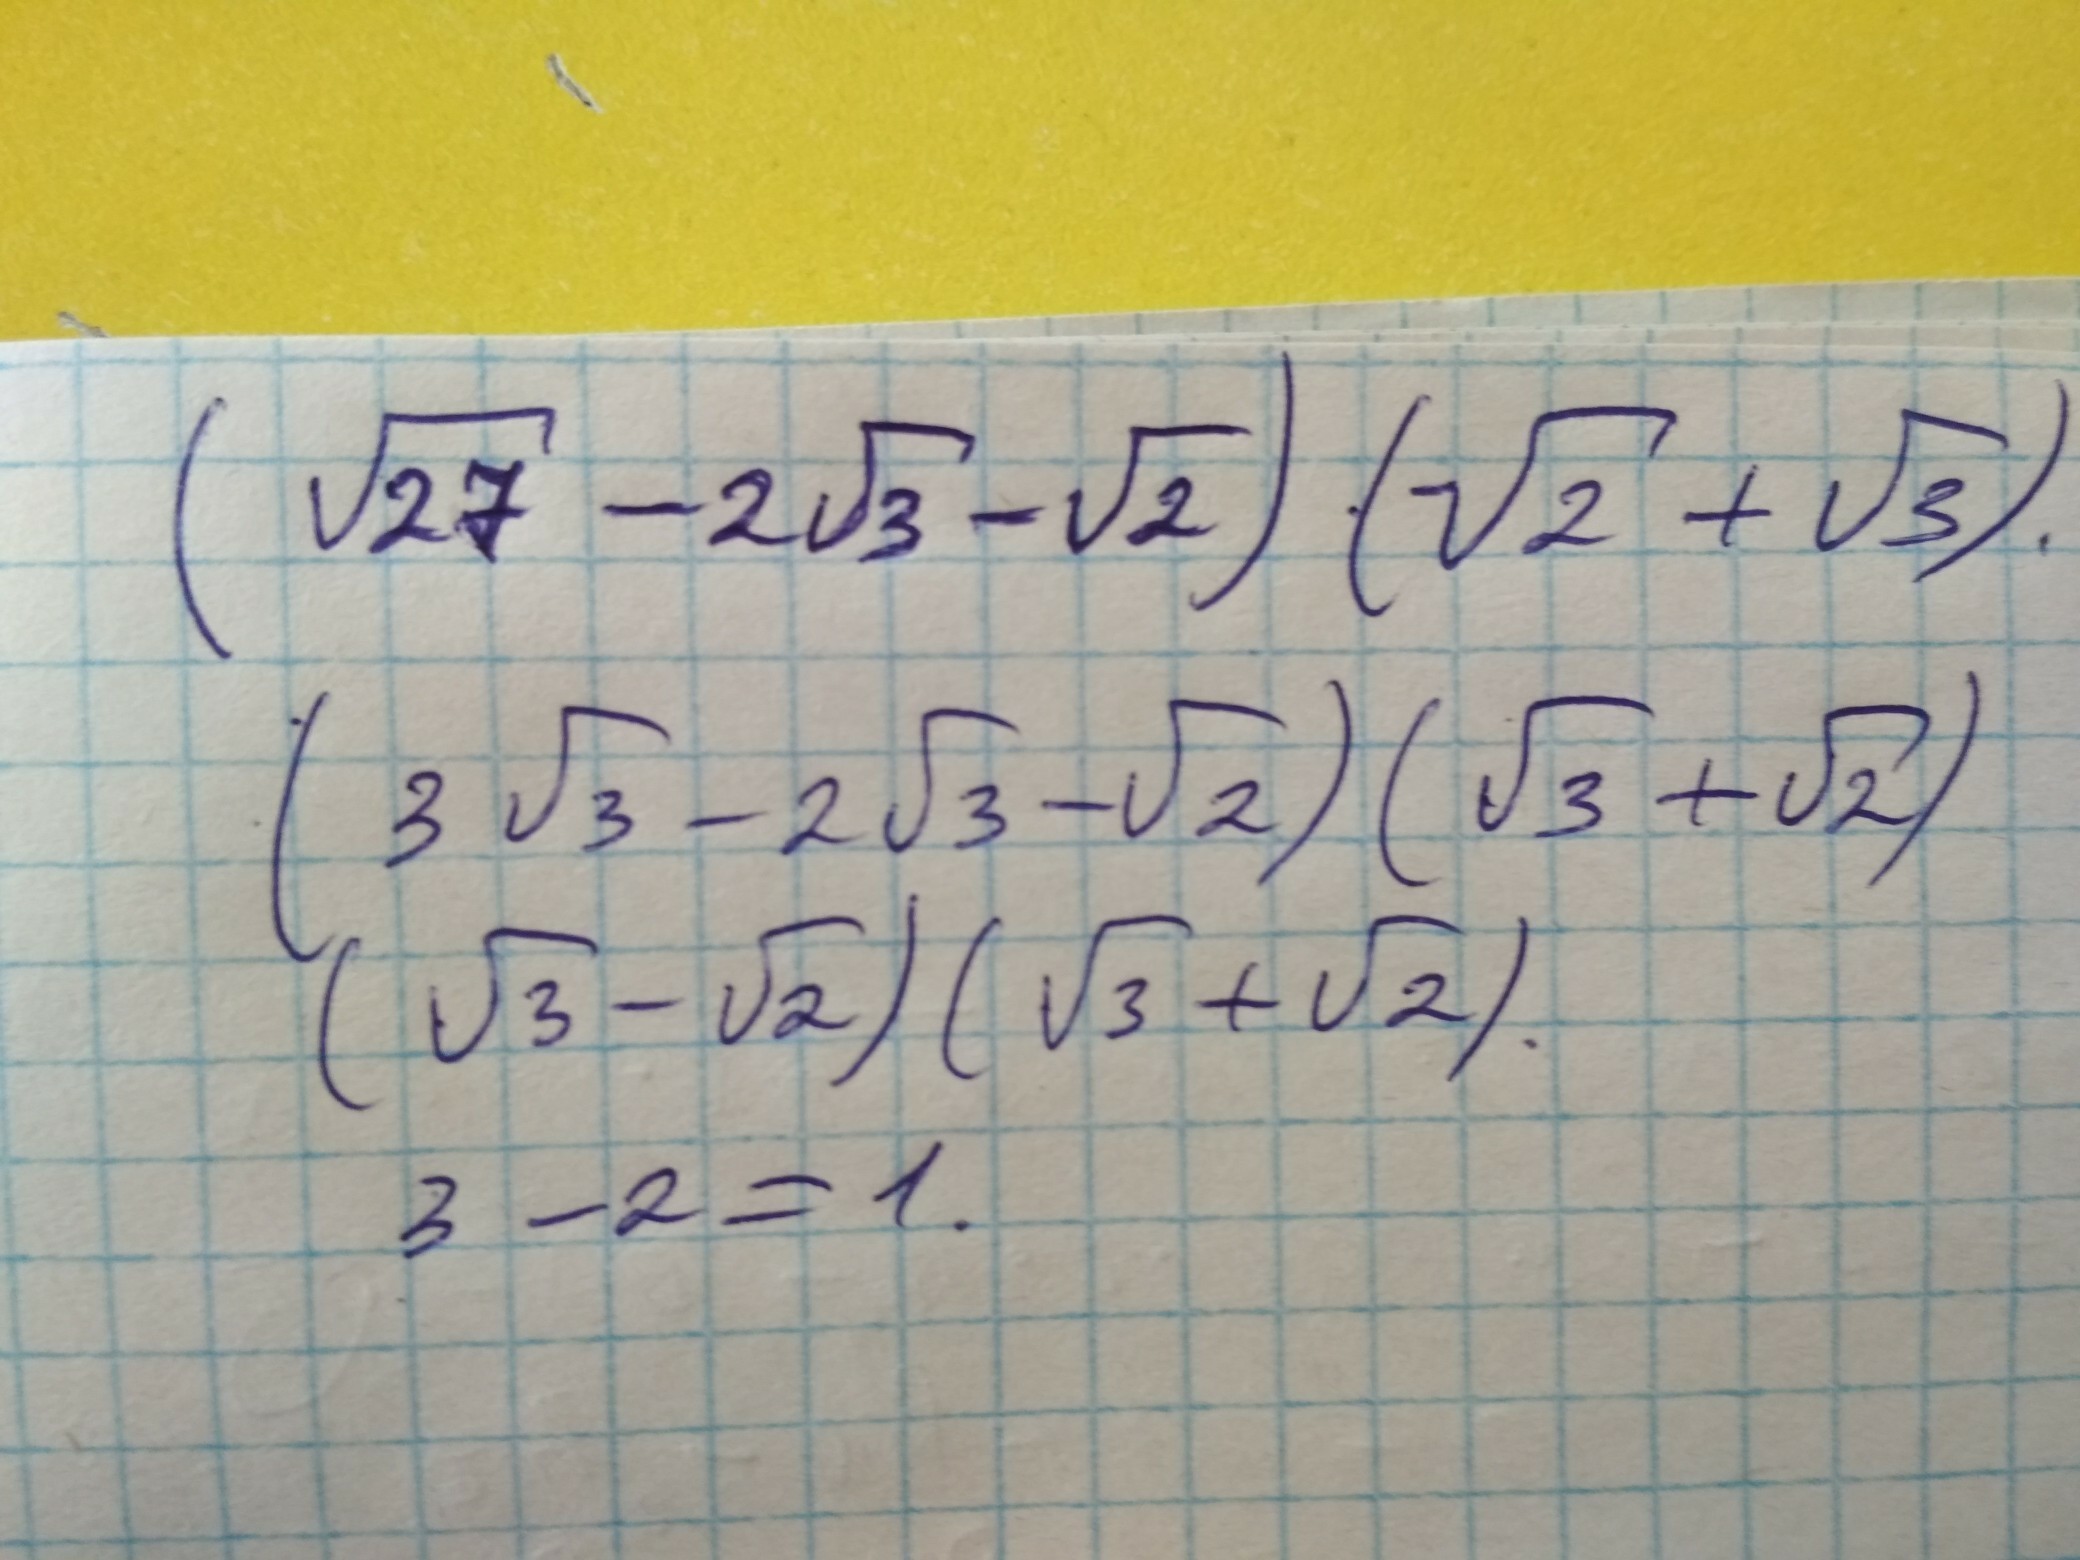 (√27 - 2√3 - √2) (√2 + √3).
(3√3 - 2√3 - √2) (√3 + √2)
(√3 - √2) (√3 + √2).
3 - 2 = 1.